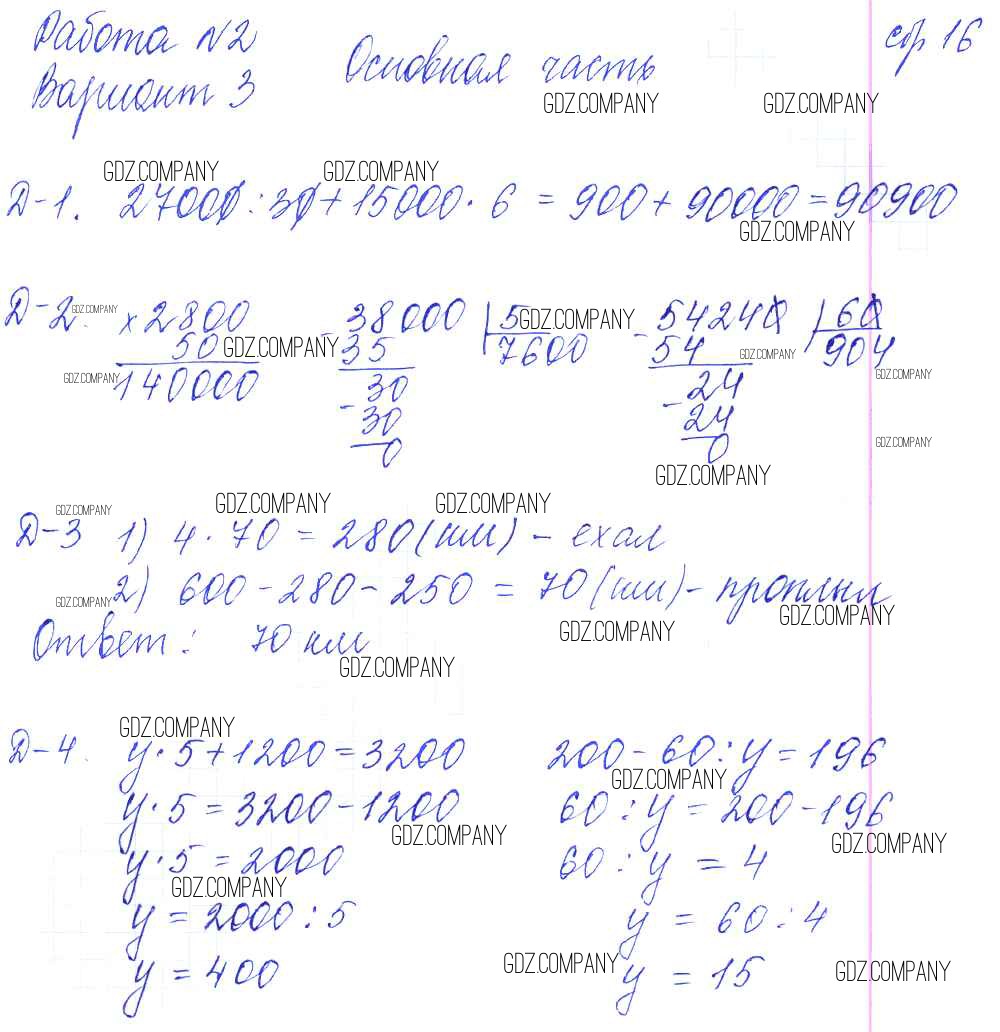 Работа №2
Вариант 3
Основная часть
стр 16
GDZ.COMPANY GDZ.COMPANY
GDZ.COMPANY GDZ.COMPANY
Д-1. 27000 : 30 + 15000 · 6 = 900 + 90000 = 90900
GDZ.COMPANY
Д-2. GDZ.COMPANY × 2800 - 38000 | 5 GDZ.COMPANY - 54240 | 60
50 GDZ.COMPANY 35 7600 54 GDZ.COMPANY 904
GDZ.COMPANY 140000 30 24 GDZ.COMPANY
- 30 - 24
0 0 GDZ.COMPANY
GDZ.COMPANY
GDZ.COMPANY GDZ.COMPANY GDZ.COMPANY
Д-3 1) 4 · 70 = 280 (км) - ехал
GDZ.COMPANY 2) 600 - 280 - 250 = 70 (км) - проплыл
GDZ.COMPANY GDZ.COMPANY
Ответ: 70 км
GDZ.COMPANY
GDZ.COMPANY
Д-4. у · 5 + 1200 = 3200
у · 5 = 3200 - 1200
GDZ.COMPANY
у · 5 = 2000
GDZ.COMPANY
у = 2000 : 5
у = 400
200 - 60 : у = 196
GDZ.COMPANY
60 : у = 200 - 196
GDZ.COMPANY
60 : у = 4
у = 60 : 4
GDZ.COMPANY GDZ.COMPANY
у = 15